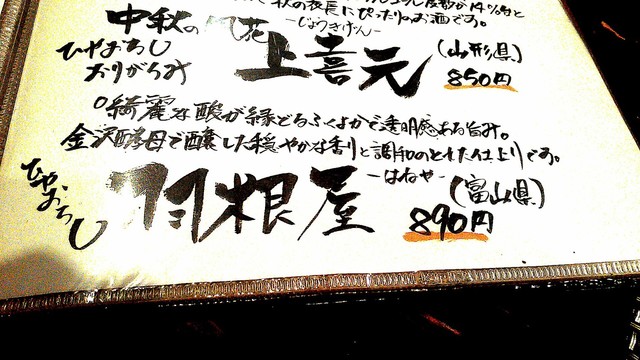 秋の夜長にぴったりのお酒です。
中秋の
ひやおろし
おりがらみ
-じょうきげん-
上喜元
(山形県)
850円
○綺麗な酸が縁どるふくよかで透明感ある旨み。
金沢酵母で醸した穏やかな香りと調和のとれた仕上りです。
ひやおろし
羽根屋
-はねや-
(富山県)
890円